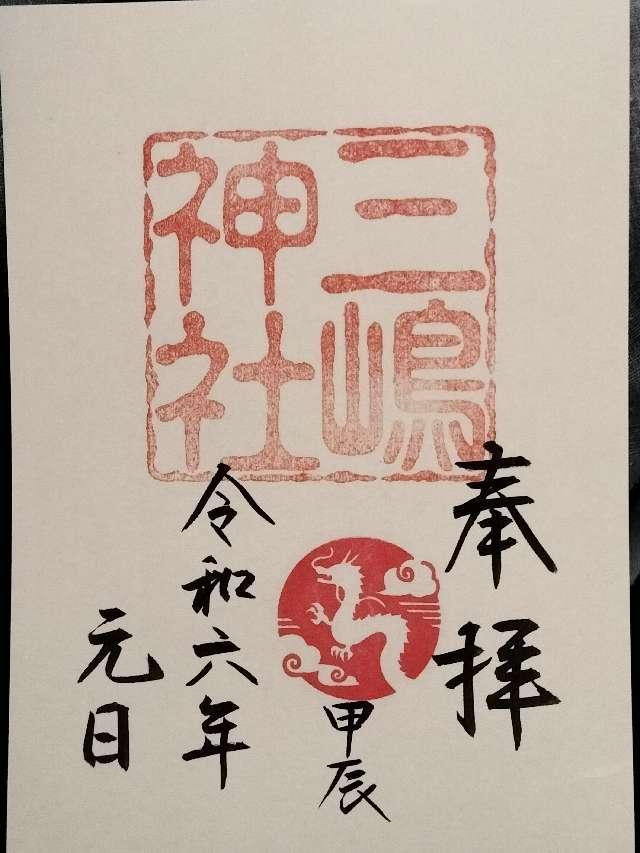 三嶋
神社
奉拝
甲辰
令和六年
元日